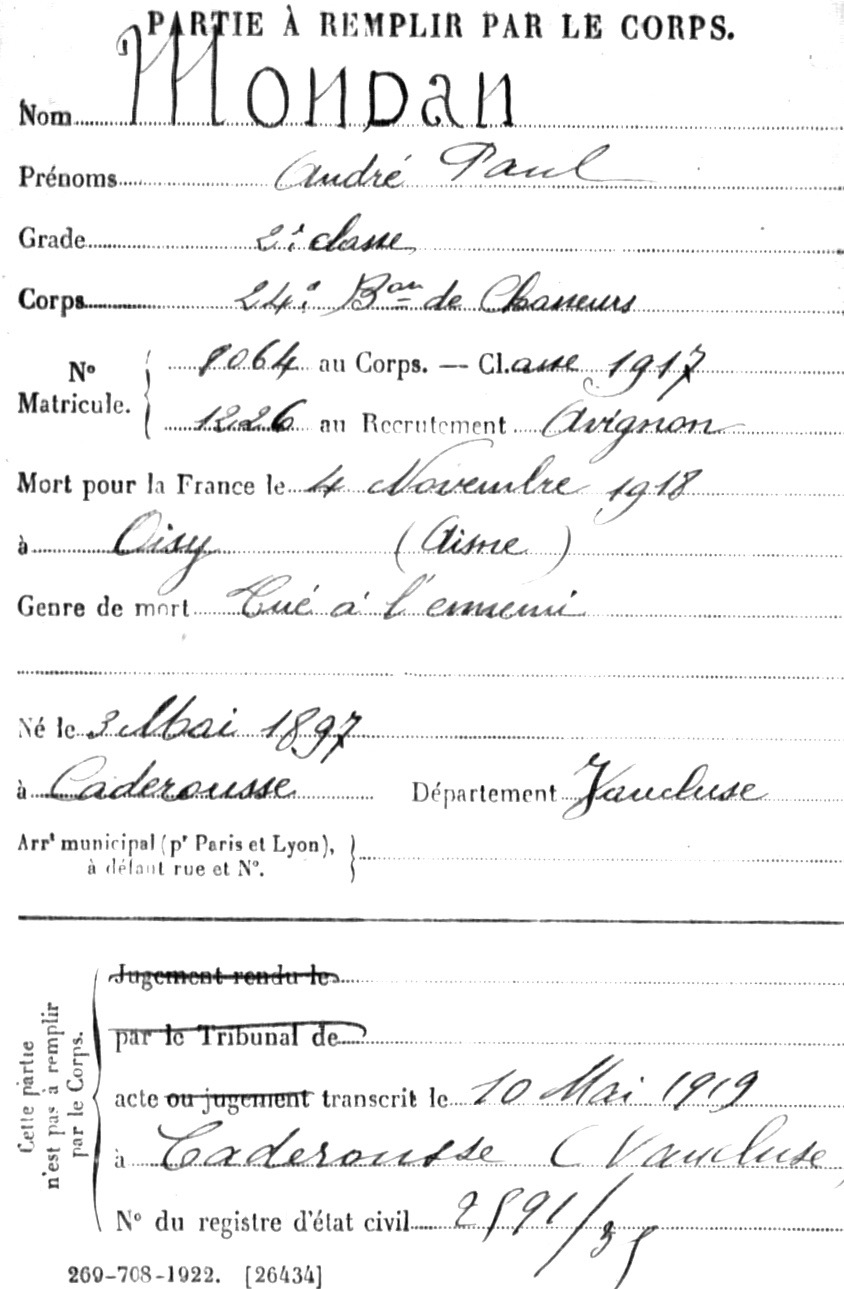 PARTIE À REMPLIR PAR LE CORPS.
Nom Mondan
Prénoms André Paul
Grade 2e classe
Corps 24e Bon de Chasseurs
No Matricule. 8064 au Corps. — Cl.asse 1917
1226 au Recrutement Avignon
Mort pour la France le 4 Novembre 1918
à Oisy (Aisne)
Genre de mort Tué à l'ennemi
Né le 3 Mai 1897
à Caderousse Département Vaucluse
Arrt municipal (pr Paris et Lyon), à défaut rue et No.
Cette partie n'est pas à remplir par le Corps.
Jugement rendu le
par le Tribunal de
acte ou jugement transcrit le 10 Mai 1919
à Caderousse (Vaucluse
No du registre d'état civil 2591/35
269-708-1922. [26434]